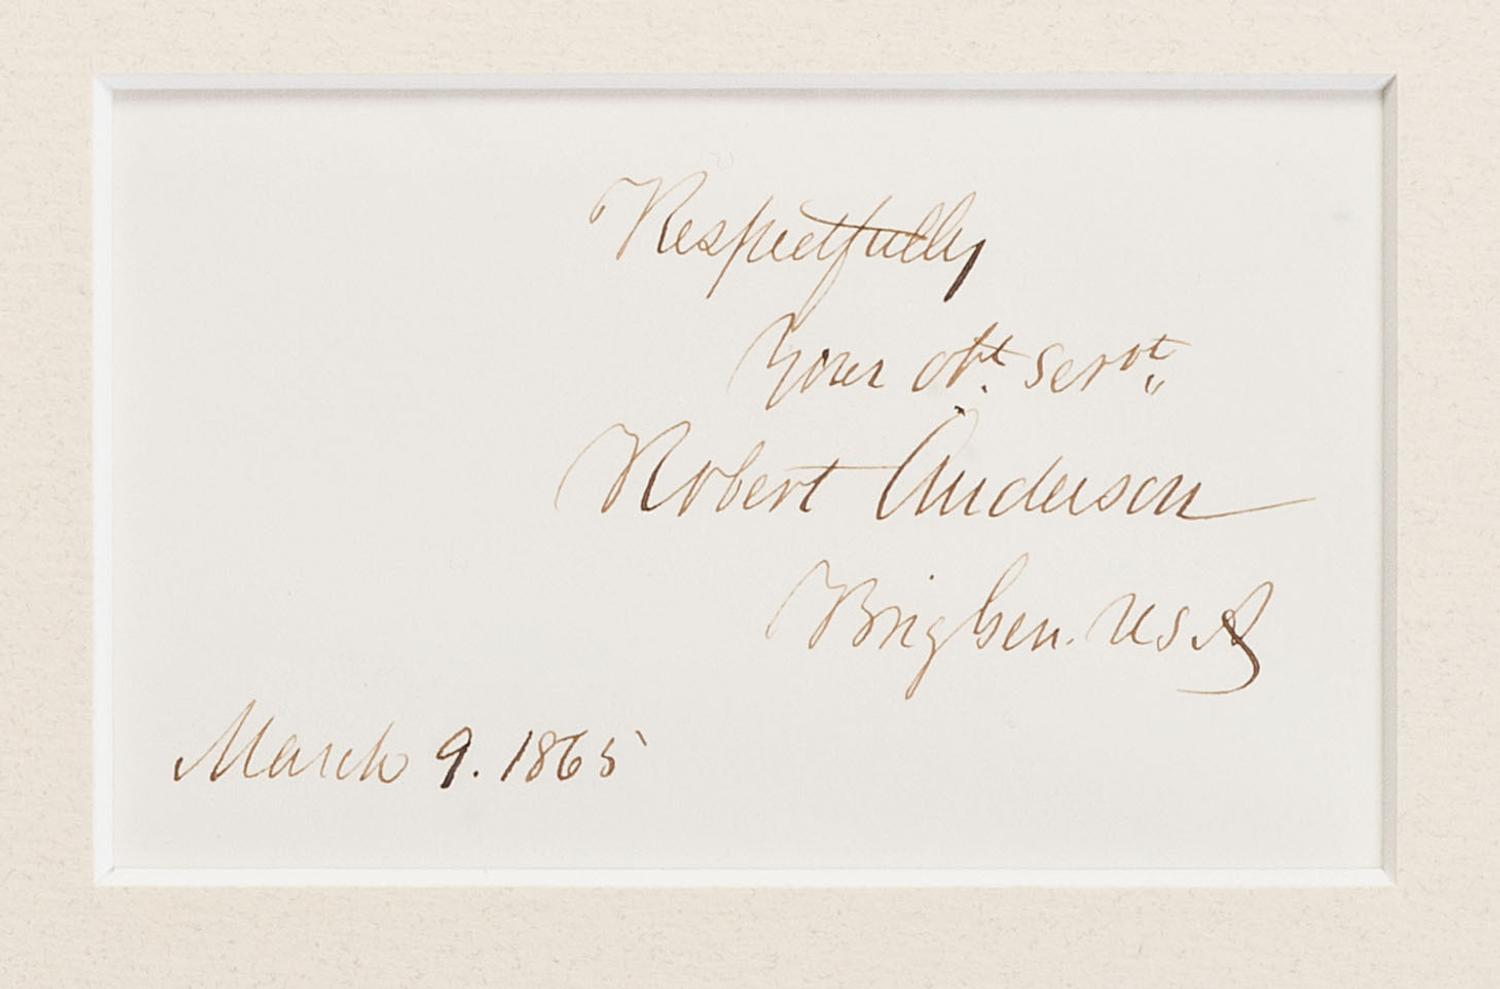 Respectfully
Your obt. servt,,
Robert Anderson
Brig Gen. USA
March 9. 1865